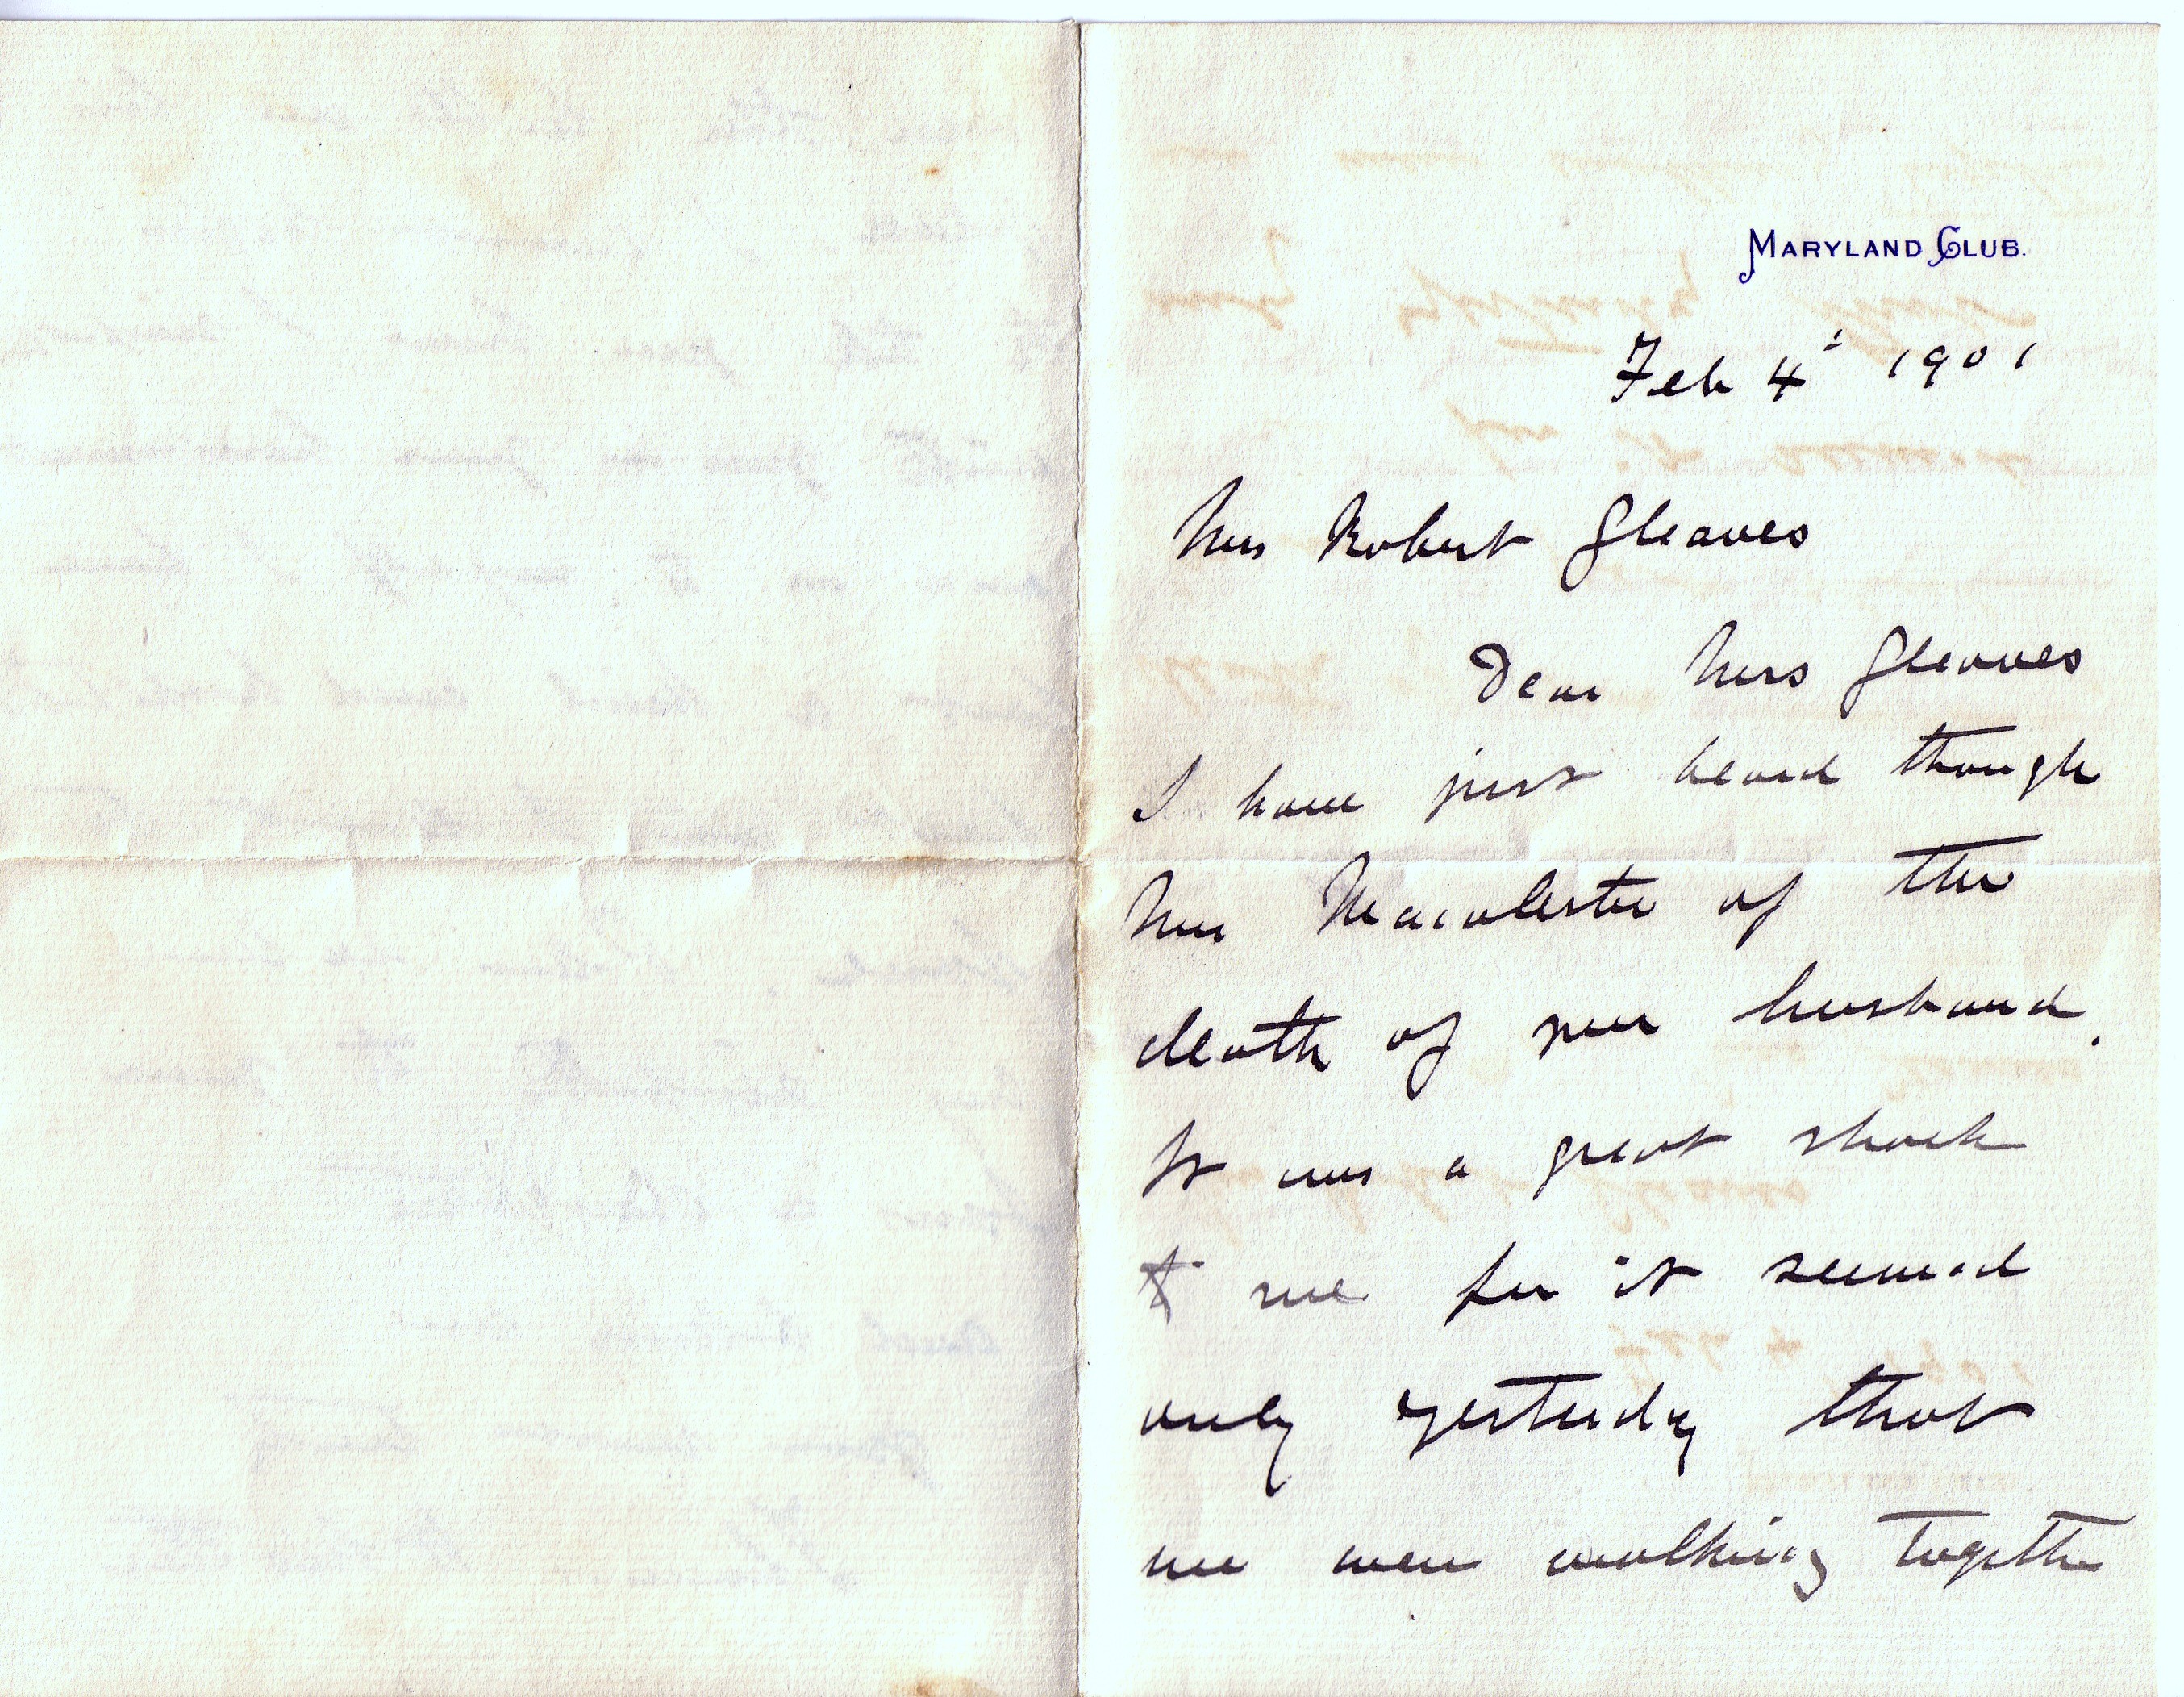 MARYLAND CLUB.
Feb 4th 1901
Mrs Robert Gleaves
Dear Mrs Gleaves
I have just heard though
Mrs Macalester of the
death of your husband.
It was a great shock
to me for it seemed
only yesterday that
we were walking together